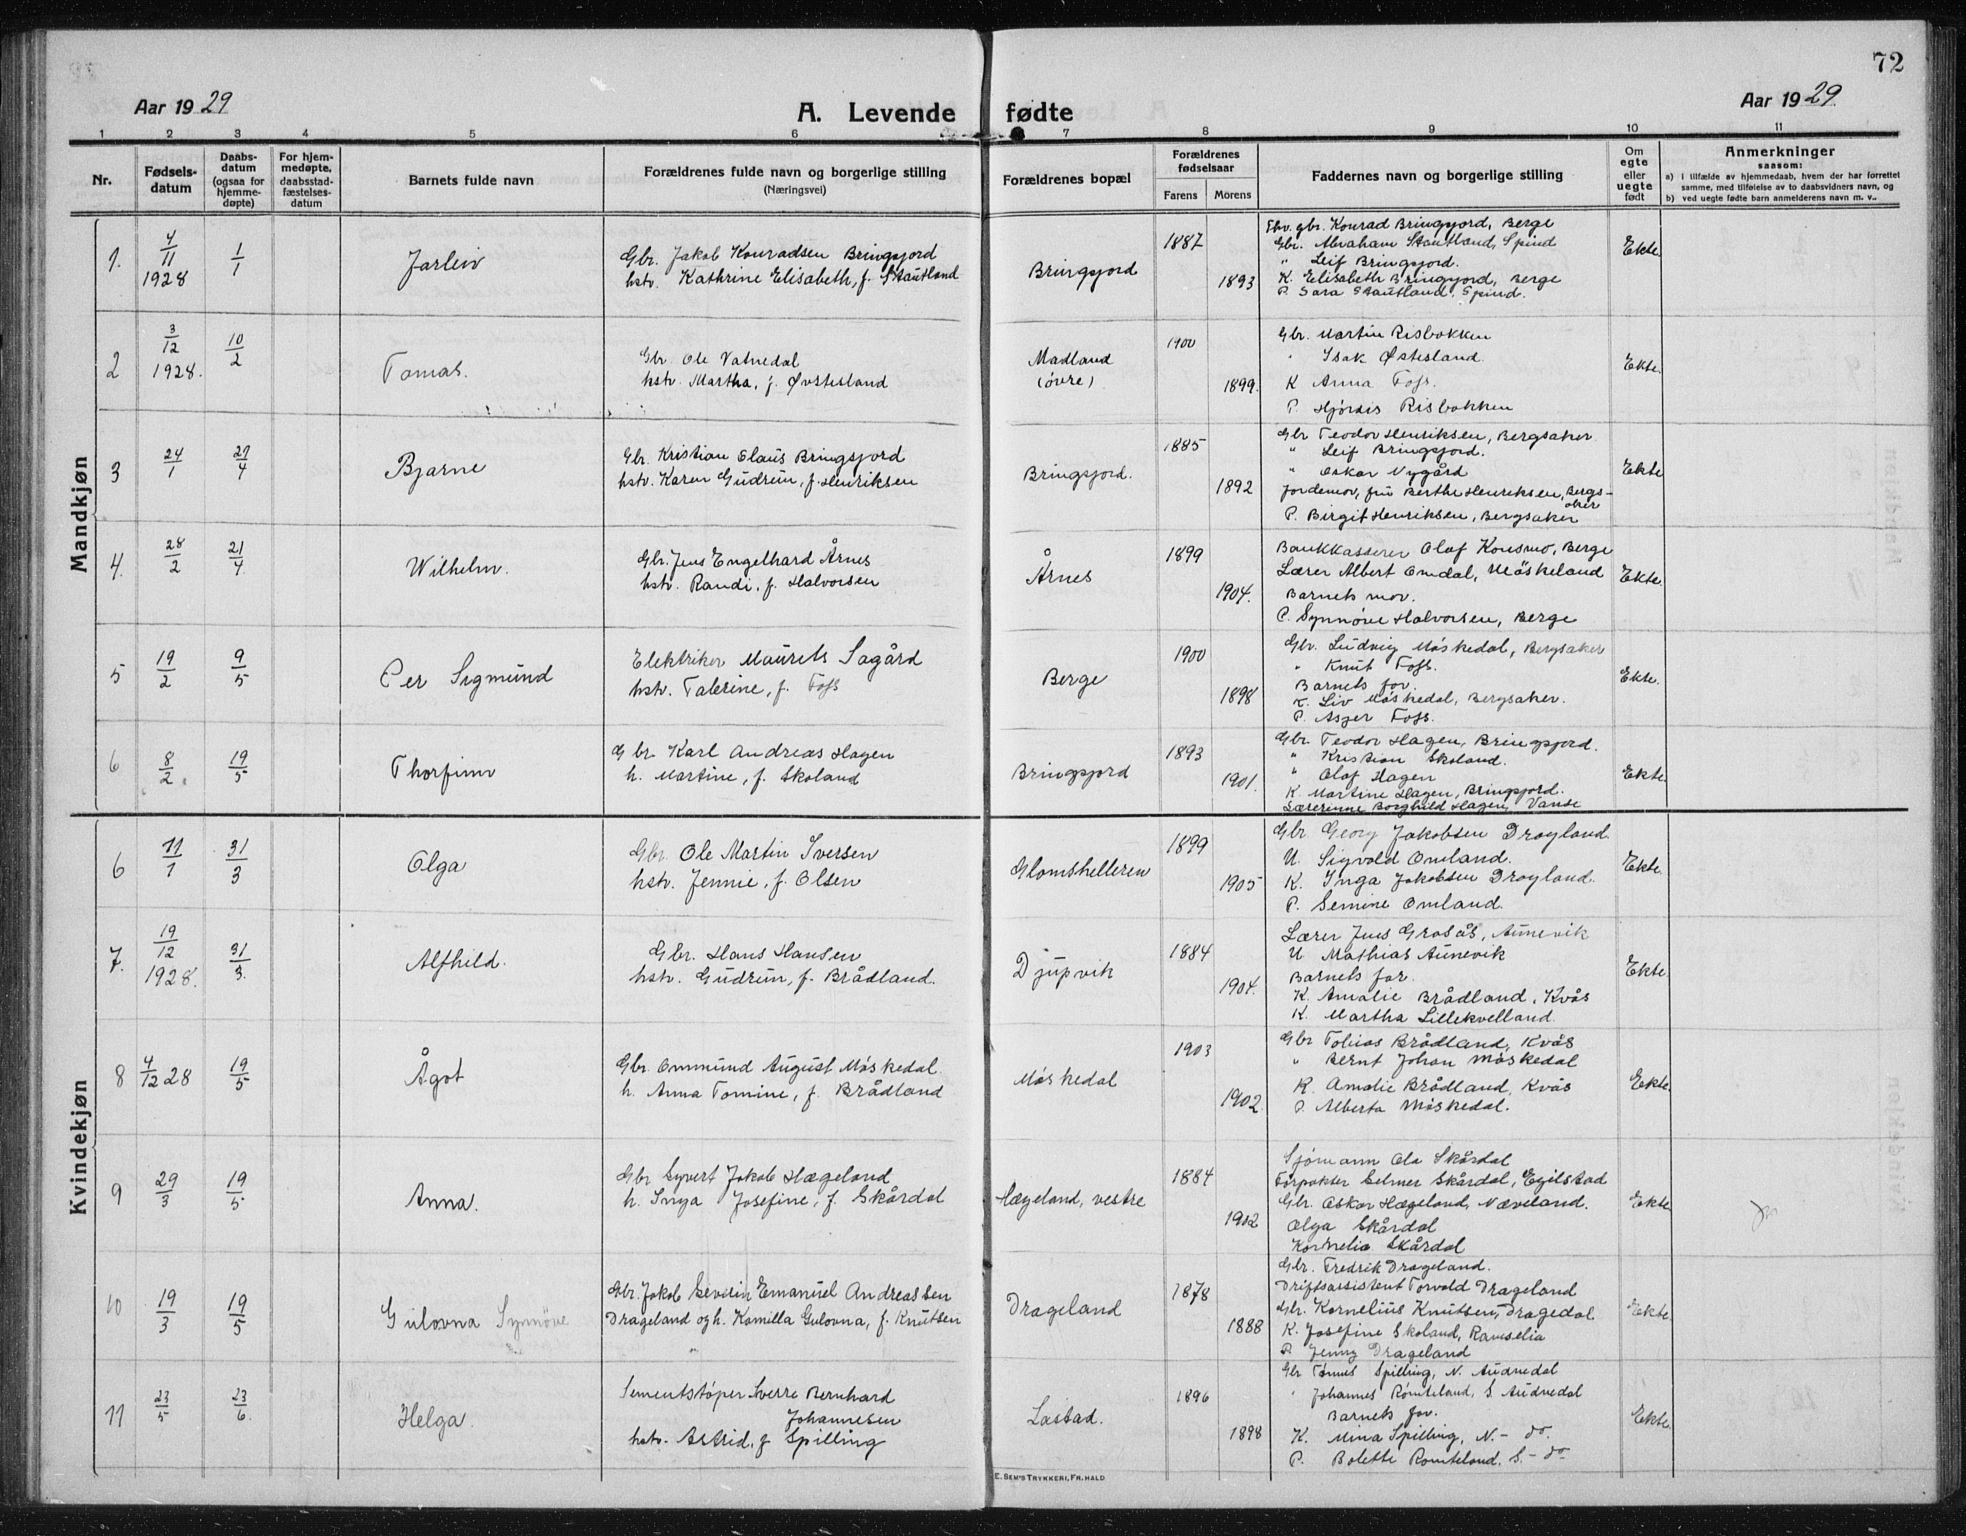 72
Aar 1929
A. Levende fødte
Aar 1929
1 2 3 4 5 6 7 8 9 10 11
Nr.
Fødsels-
datum
Daabs-
datum
(ogsaa for
hjemme-
døpte)
For hjem-
medøpte,
daabsstad-
fæstelses-
datum
Barnets fulde navn
Forældrenes fulde navn og borgerlige stilling
(Næringsvei)
Forældrenes bopæl
Forældrenes
fødselsaar
Farens Morens
Faddernes navn og borgerlige stilling
Om
egte
eller
uegte
født
Anmerkninger
saasom:
a) i tilfælde av hjemmedaab, hvem der har forrettet
samme, med tilføielse av to daabsvidners navn, og
b) ved uegte fødte barn anmelderens navn m. v..
Mandkjøn
1. 4/11 1928 1/1 Jarleiv
Gbr. Jakob Konradsen Bringsjord
hstr. Kathrine Elisabeth, f. Stautland
Bringsjord 1887 1893
Gbr. Konrad Bringsjord, Berge
Gbr. Abraham Stautland, Spind
" Leif Bringsjord.
K. Elisabeth Bringsjord, Berge
P. Sara Stautland, Spind.
Ekte
2 3/12 1928. 10/2 Tomas.
Gbr. Ole Vatnedal
hstr. Martha, f. Øvstesland
Madland
(øvre)
1900 1899.
Gbr. Martin Risbakken
" Isak Østesland
K Anna Foss.
P. Hjørdis Risbakken
Ekte.
3 24/1 21/4 Bjarne
Gbr. Kristian Olaus Bringsjord
hstr. Karen Gudrun, f. Henriksen
Bringsjord. 1885 1892
Gbr Teodor Henriksen, Bergsaker
" Leif Bringsjord.
" Oskar Nygård
Jordemor, fru Berthe Henriksen, Bergs-
aker
P. Birgit Henriksen, Bergsaker
Ekte
4. 28/2 21/4 Wilhelm.
Gbr. Jens Engelhard Årnes
hstr. Randi, f. Halvorsen
Årnes 1899 1904.
Bankkasserer Olaf Konsmo, Berge
Lærer Albert Omdal, Møskeland
Barnets mor.
P. Synnøve Halvorsen, Berge
Ekte.
5 19/2 9/5 Per Sigmund
Elektriker Maurits Sagård
hstr. Talerine, f. Foss
Berge 1900 1898
Gbr. Ludvig Møskedal, Bergsaker
" Knut Foss.
Barnets far.
K. Liv Møskedal, Bergsaker.
P. Foss.
Ekte.
6 8/2 19/5 Thorfinn
Gbr. Karl Andreas Hagen
h. Martine, f. Skoland
Bringsjord 1893 1901.
Gbr. Teodor Hagen, Bringsjord.
" Kristian Skoland.
" Olaf Hagen
K Martine Hagen, Bringsjord.
Lærerinne Borghild Hagen, Vanse
Ekte
Kvindekjøn
6 11/1 31/3 Olga
Gbr. Ole Martin Iversen
hstr. Jennie, f. Olsen
Glomshelleren 1899 1905
Gbr Georg Jakobsen Drøyland
U. Sigvald Omland.
K. Inga Jakobsen Drøyland.
P. Semine Omland.
Ekte.
7. 19/12 1928. 31/3. Alfhild.
Gbr. Hans Hansen
hstr. Gudrun, f. Brådland.
Djupvik 1884 1904.
Lærer Jens Grosås, Aunevik
U Mathias Aunevik
Barnets far.
K. Amalie Brådland, Kvås
K. Martha Lillekvelland.
Ekte
8 4/12 28 19/5 Ågot
Gbr. Ommund August Møskedal.
h. Anna Tomine, f. Brådland
Møskedal 1903 1902
Gbr Tobias Brådland, Kvås
" Bernt Johan Møskedal
K. Amalie Brådland, Kvås
P. Alberta Møskedal.
Ekte.
9 29/3 19/5 Anna.
Gbr Syvert Jakob Hægeland
h. Inga Josefine, f. Skårdal
Hægeland, vestre 1884 1902
Sjømann Ola Skårdal
Forpakter Selmer Skårdal, Egilstad
Gbr. Oskar Hægeland, Næveland.
Olga Skårdal
Kornelia Skårdal
Ekte
10 19/3 19/5 Gulovna Synnøve
Gbr. Jakob Severin Emanuel Andreassen
Drageland og h. Kamilla Gulovna, f. Knutsen
Drageland 1878 1888
Gbr. Fredrik Drageland.
Driftsassistent Torvald Drageland
Gbr. Kornelius Knutsen, Dragedal
K. Josefine Skoland, Ramselia
P. Jenny Drageland
Ekte
11 23/5 23/6. Helga.
Sementstøper Sverre Bernhard
Johannesen
hstr. Astrid, f Spilling
Lastad. 1896 1898
Gbr Tønnes Spilling, N. Audnedal
" Johannes Romteland, S. Audnedal
Barnets far.
K. Mina Spilling, N.- do.
P. Bolette Romteland. S.- do
Ekte
E. SEM'S TRYKKERI, FR.HALD